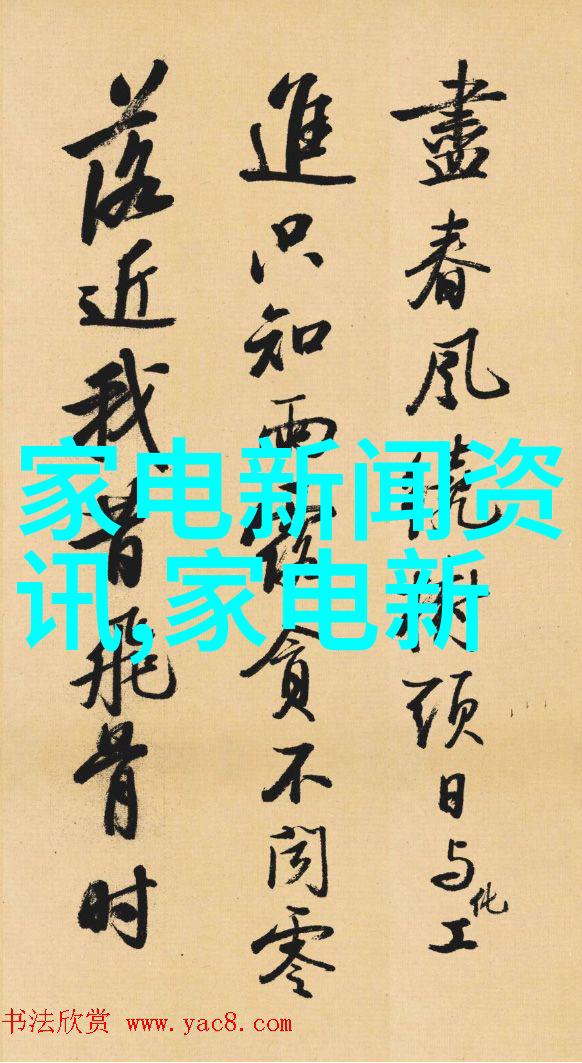 盡春風繞樹頭日与化工
進只知雨露貪不聞零
落近我昔飛骨时
家电新闻资
讯,家电新
书法欣赏 www.yac8.com